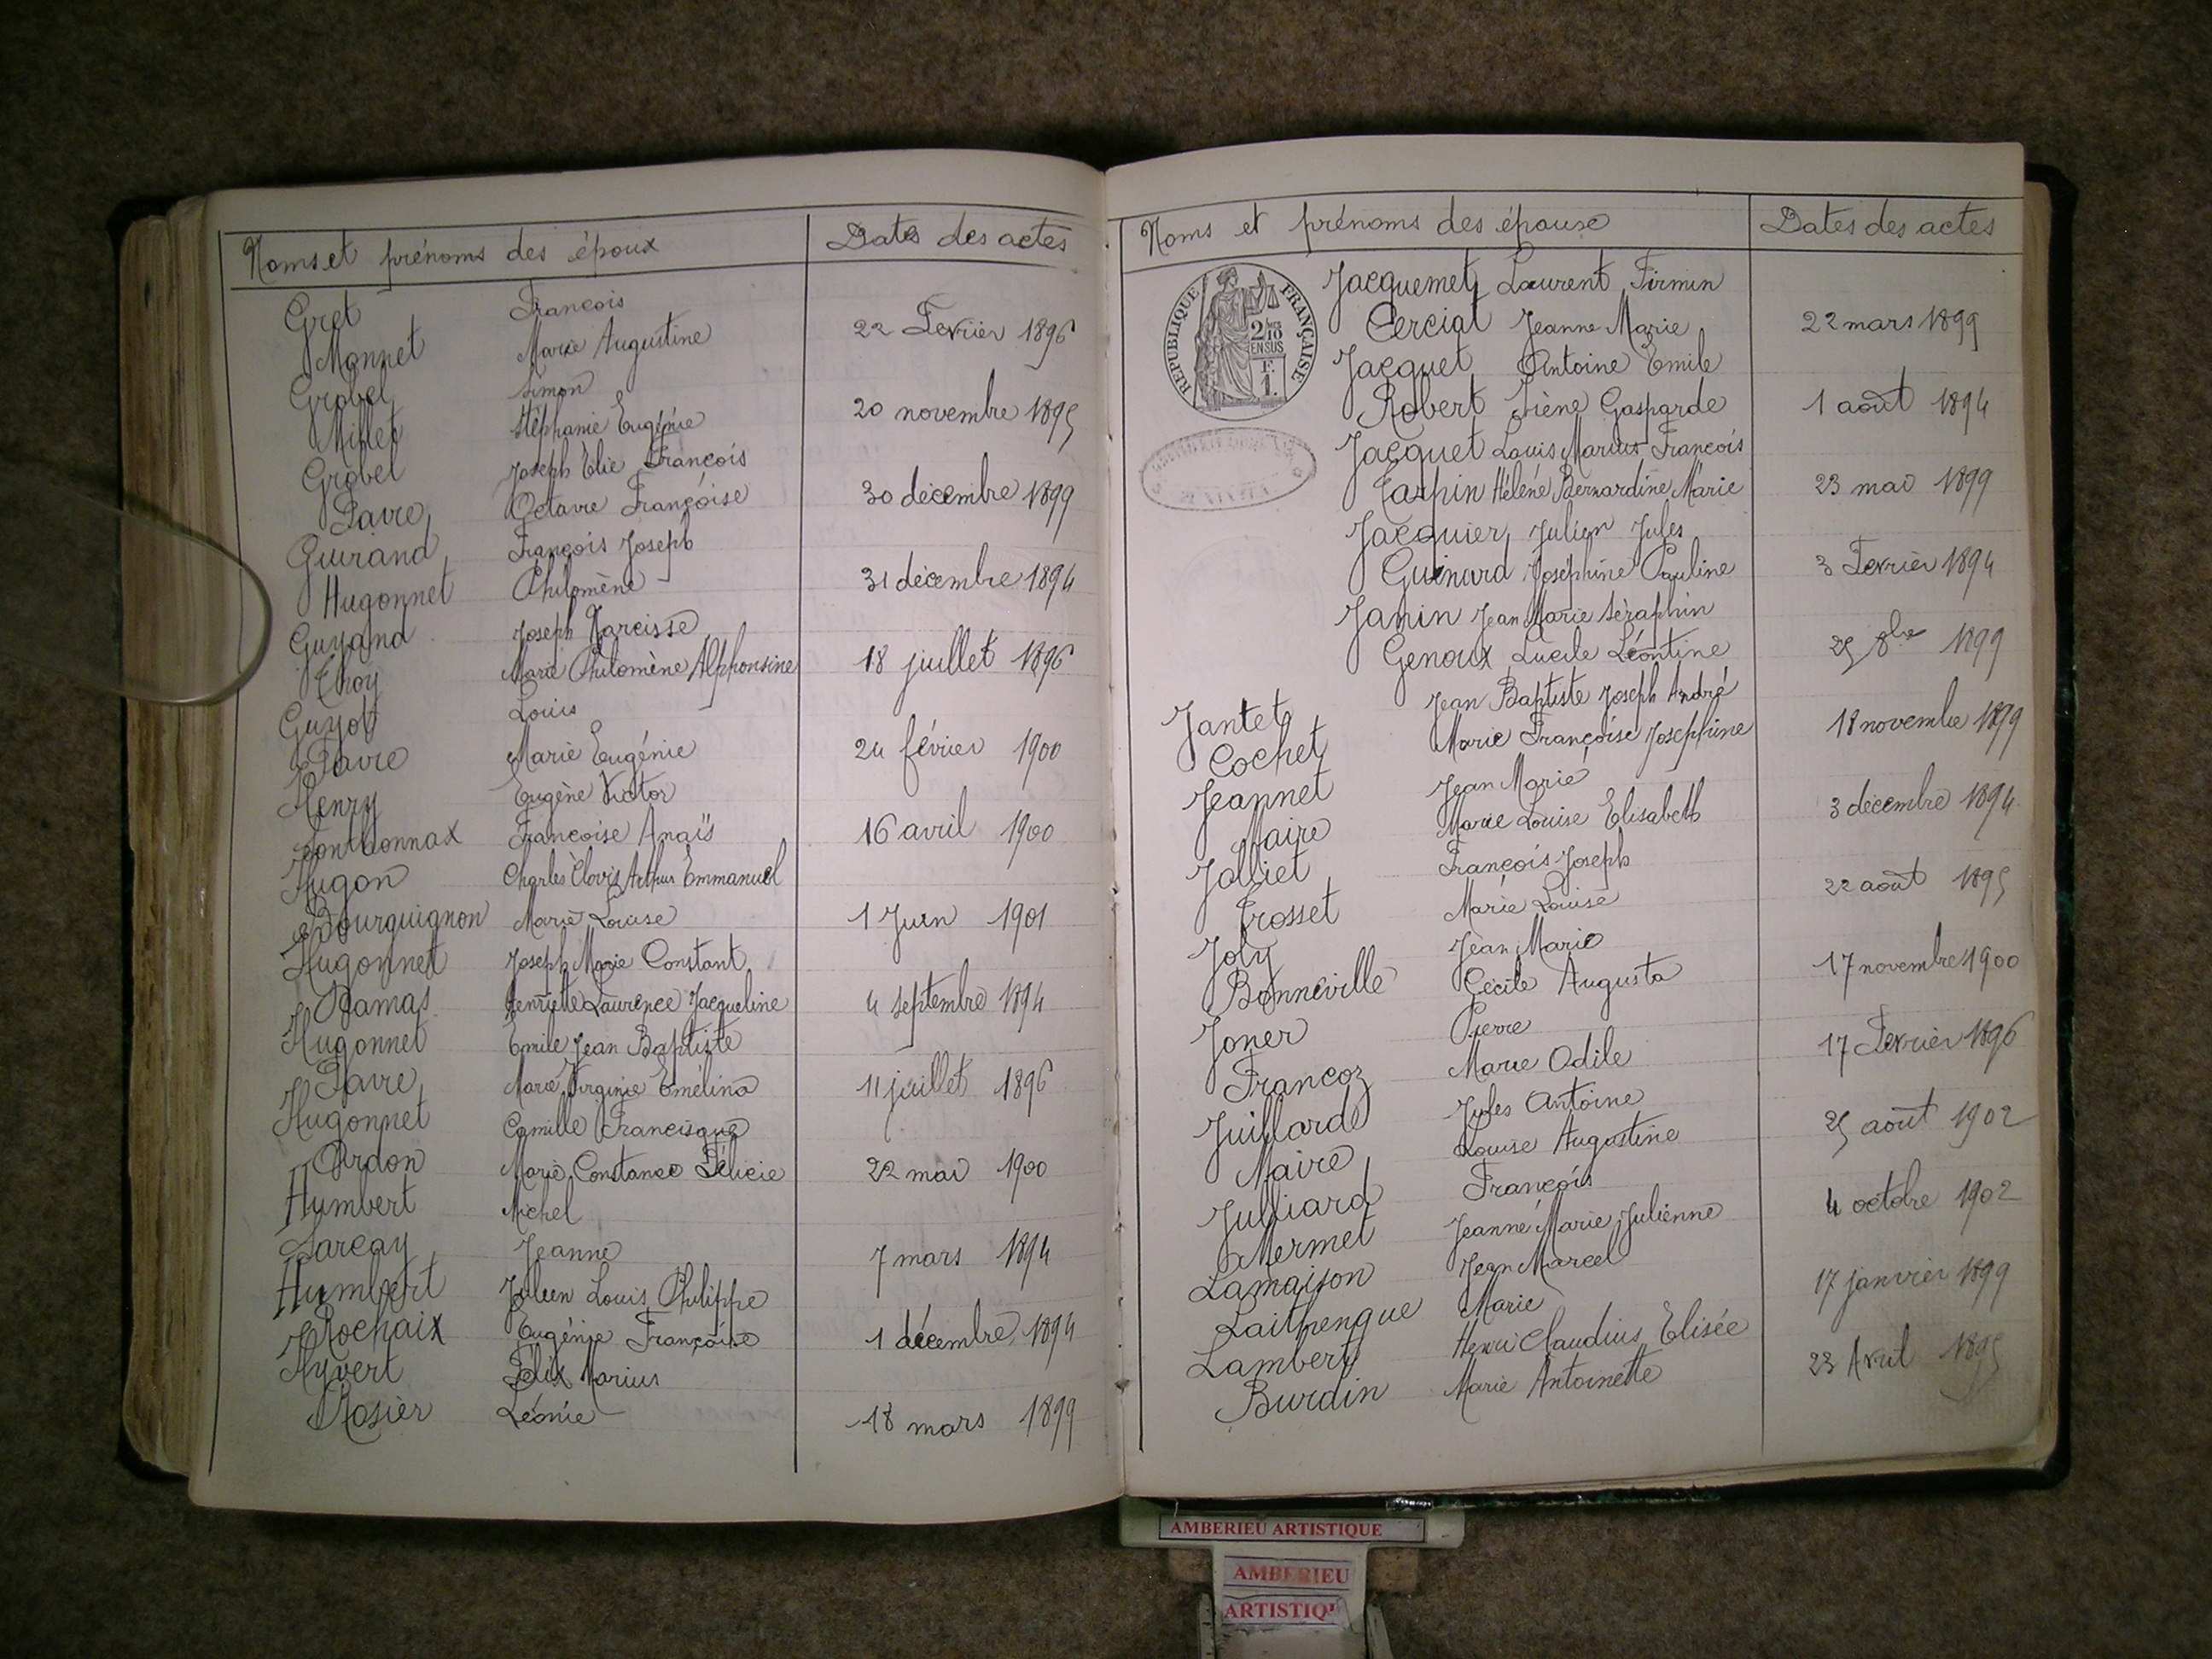 Noms et prénoms des époux Dates des actes
Gret François
Monnet Marie Augustine 22 Fevrier 1896
Grobel Simon
Millet Stéphanie Eugénie 20 novembre 1895
Grobel Joseph Elie François
Favre Octavie Françoise 30 decembre 1899
Guirand François Joseph
Hugonnet Philomène 31 décembre 1894
Guyand Joseph Narcisse
Thoy Marie Philomène Alphonsine 18 juillet 1896
Guyot Louis
Favre Marie Eugénie 24 février 1900
Henry Eugène Victor
Fontbonnax Françoise Anaïs 16 avril 1900
Hugon Charles Clovis Arthur Emmanuel
Bourguignon Marie Louise 1 Juin 1901
Hugonnet Joseph Marie Constant
Damas Henriette Laurence Jacqueline 4 septembre 1894
Hugonnet Emile Jean Baptiste
Favre Marie Virginie Emélina 11 juillet 1896
Hugonnet Camille Francisque
Ordon Marie Constance Félicie 22 mai 1900
Humbert Michel
Jeanne 7 mars 1894
Humbert Julien Louis Philippe
Rochaix Eugénie Françoise 1 décembre 1894
Hyvert Félix Marius
Rosier Léonie 18 mars 1899
Noms et prénoms des épouse Dates des actes
REPUBLIQUE FRANÇAISE
2/10
EN SUS
F.
1.
Jacquemet Laurent Firmin
Cerciat Jeanne Marie 22 mars 1899
Jacquet Antoine Emile
Robert Irène Gasparde 1 août 1894
Jacquet Louis Marius François
Tarpin Hélène Bernardine Marie 23 mai 1899
Jacquier Julien Jules
Guinard Joséphine Pauline 3 Fevrier 1894
Janin Jean Marie Séraphin
Genoux Lucile Léontine 25 8bre 1899
Jantet Jean Baptiste Joseph André
Cochet Marie Françoise Josephine 18 novembre 1899
Jeannet Jean Marie
Maire Marie Louise Elisabeth 3 décembre 1894
Jolliet François Joseph
Trosset Marie Louise 22 août 1895
Joly Jean Marie
Bonneville Cécile Augusta 17 novembre 1900
Joner Pierre
Francoz Marie Odile 17 Fevrier 1896
Juillard Jules Antoine
Maire Louise Augustine 25 août 1902
Julliard François
Mermet Jeanne Marie Julienne 4 octobre 1902
Lamaison Jean Marcel
Laithengue Marie 17 janvier 1899
Lambert Henri Claudius Elisée
Burdin Marie Antoinette 23 Avril 1895
AMBERIEU ARTISTIQUE
AMBERIEU
ARTISTIQU